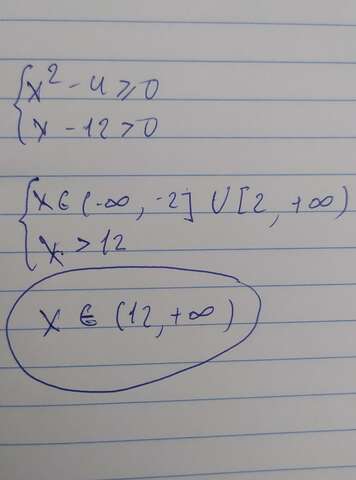 { x² - 4 ≥ 0
x - 12 > 0
{ x ∈ (-∞, -2] ∪ [2, +∞)
x > 12
x ∈ (12, +∞)